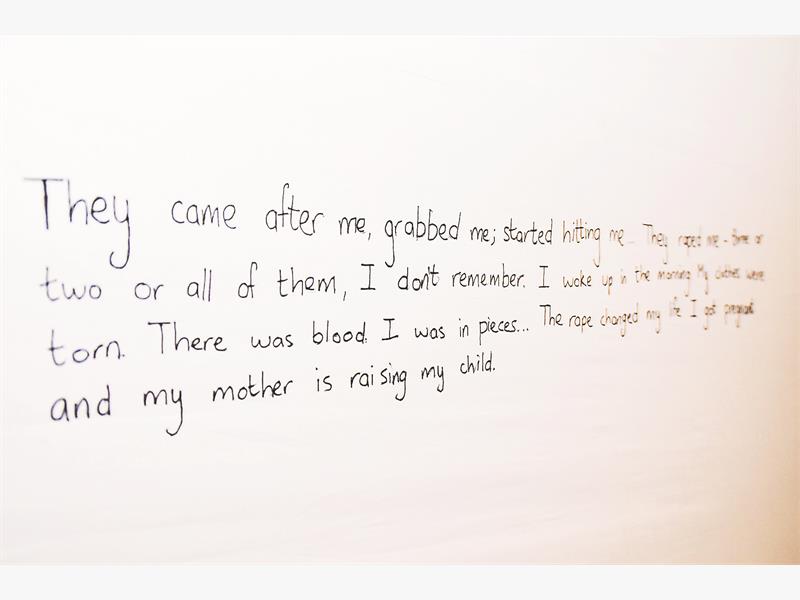 They came after me, grabbed me; started hitting me... They raped me - three or
two or all of them, I don't remember. I woke up in the morning. My clothes were
torn. There was blood. I was in pieces... The rape changed my life. I got pregnant
and my mother is raising my child.